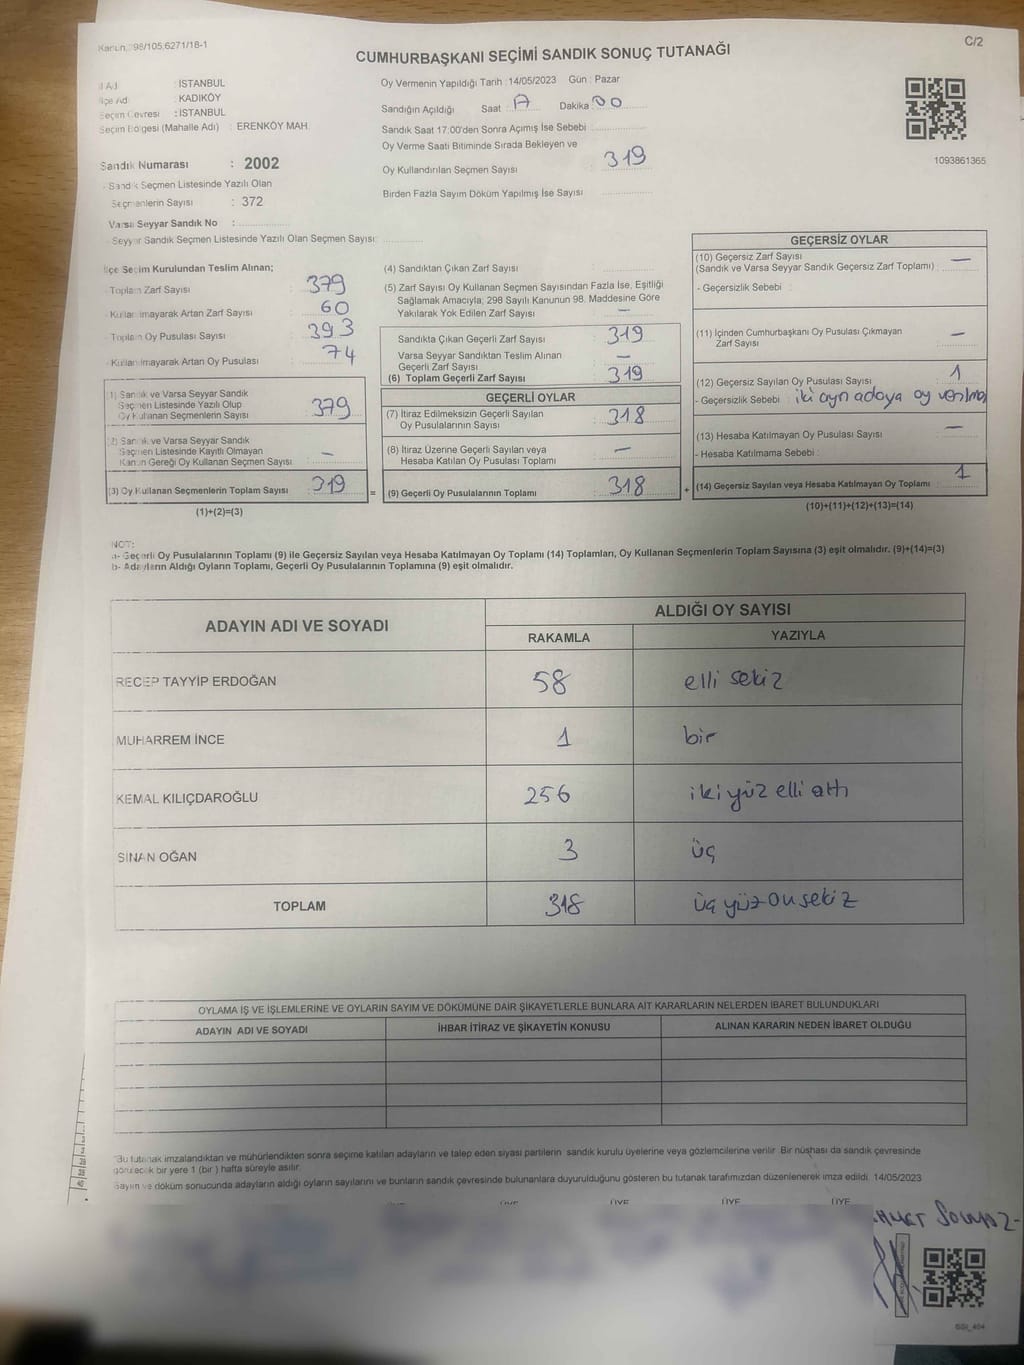 Kanun: 98/105;6271/18-1
C/2
CUMHURBAŞKANI SEÇİMİ SANDIK SONUÇ TUTANAĞI
İl Adı : İSTANBUL
İlçe Adı : KADIKÖY
Seçim Çevresi : İSTANBUL
Seçim Bölgesi (Mahalle Adı) : ERENKÖY MAH.
Sandık Numarası : 2002
- Sandık Seçmen Listesinde Yazılı Olan
Seçmenlerin Sayısı : 372
Varsa Seyyar Sandık No :
- Seyyar Sandık Seçmen Listesinde Yazılı Olan Seçmen Sayısı:
Oy Vermenin Yapıldığı Tarih : 14/05/2023 Gün : Pazar
Sandığın Açıldığı Saat : 17 Dakika 00
Sandık Saat 17:00'den Sonra Açımış İse Sebebi
Oy Verme Saati Bitiminde Sırada Bekleyen ve
Oy Kullandırılan Seçmen Sayısı 319
Birden Fazla Sayım Döküm Yapılmış İse Sayısı
1093861365
İlçe Seçim Kurulundan Teslim Alınan;
- Toplam Zarf Sayısı 379
- Kullanılmayarak Artan Zarf Sayısı 60
- Toplam Oy Pusulası Sayısı 393
- Kullanılmayarak Artan Oy Pusulası 74
(1) Sandık ve Varsa Seyyar Sandık
Seçmen Listesinde Yazılı Olup
Oy Kullanan Seçmenlerin Sayısı 379
(2) Sandık ve Varsa Seyyar Sandık
Seçmen Listesinde Kayıtlı Olmayan
Kanun Gereği Oy Kullanan Seçmen Sayısı –
(3) Oy Kullanan Seçmenlerin Toplam Sayısı 319 =
(1)+(2)=(3)
(4) Sandıktan Çıkan Zarf Sayısı
(5) Zarf Sayısı Oy Kullanan Seçmen Sayısından Fazla İse, Eşitliği
Sağlamak Amacıyla; 298 Sayılı Kanunun 98. Maddesine Göre
Yakılarak Yok Edilen Zarf Sayısı –
Sandıkta Çıkan Geçerli Zarf Sayısı 319
Varsa Seyyar Sandıktan Teslim Alınan
Geçerli Zarf Sayısı –
(6) Toplam Geçerli Zarf Sayısı 319
GEÇERLİ OYLAR
(7) İtiraz Edilmeksizin Geçerli Sayılan
Oy Pusulalarının Sayısı 318
(8) İtiraz Üzerine Geçerli Sayılan veya
Hesaba Katılan Oy Pusulası Toplamı –
(9) Geçerli Oy Pusulalarının Toplamı 318 +
GEÇERSİZ OYLAR
(10) Geçersiz Zarf Sayısı –
(Sandık ve Varsa Seyyar Sandık Geçersiz Zarf Toplamı)
- Geçersizlik Sebebi :
(11) İçinden Cumhurbaşkanı Oy Pusulası Çıkmayan –
Zarf Sayısı
(12) Geçersiz Sayılan Oy Pusulası Sayısı 1
- Geçersizlik Sebebi : iki ayrı adaya oy verilmiş
(13) Hesaba Katılmayan Oy Pusulası Sayısı –
- Hesaba Katılmama Sebebi :
(14) Geçersiz Sayılan veya Hesaba Katılmayan Oy Toplamı 1
(10)+(11)+(12)+(13)=(14)
NOT:
a- Geçerli Oy Pusulalarının Toplamı (9) ile Geçersiz Sayılan veya Hesaba Katılmayan Oy Toplamı (14) Toplamları, Oy Kullanan Seçmenlerin Toplam Sayısına (3) eşit olmalıdır. (9)+(14)=(3)
b- Adayların Aldığı Oyların Toplamı, Geçerli Oy Pusulalarının Toplamına (9) eşit olmalıdır.
ADAYIN ADI VE SOYADI
ALDIĞI OY SAYISI
RAKAMLA YAZIYLA
RECEP TAYYİP ERDOĞAN 58 elli sekiz
MUHARREM İNCE 1 bir
KEMAL KILIÇDAROĞLU 256 iki yüz elli altı
SİNAN OĞAN 3 üç
TOPLAM 318 üç yüz on sekiz
OYLAMA İŞ VE İŞLEMLERİNE VE OYLARIN SAYIM VE DÖKÜMÜNE DAİR ŞİKAYETLERLE BUNLARA AİT KARARLARIN NELERDEN İBARET BULUNDUKLARI
ADAYIN ADI VE SOYADI İHBAR İTİRAZ VE ŞİKAYETİN KONUSU ALINAN KARARIN NEDEN İBARET OLDUĞU
Bu tutanak imzalandıktan ve mühürlendikten sonra seçime katılan adayların ve talep eden siyasi partilerin sandık kurulu üyelerine veya gözlemcilerine verilir. Bir nüshası da sandık çevresinde
görülecek bir yere 1 (bir) hafta süreyle asılır.
Sayım ve döküm sonucunda adayların aldığı oyların sayılarını ve bunların sandık çevresinde bulunanlara duyurulduğunu gösteren bu tutanak tarafımızdan düzenlenerek imza edildi. 14/05/2023
ÜYE ÜYE ÜYE ÜYE